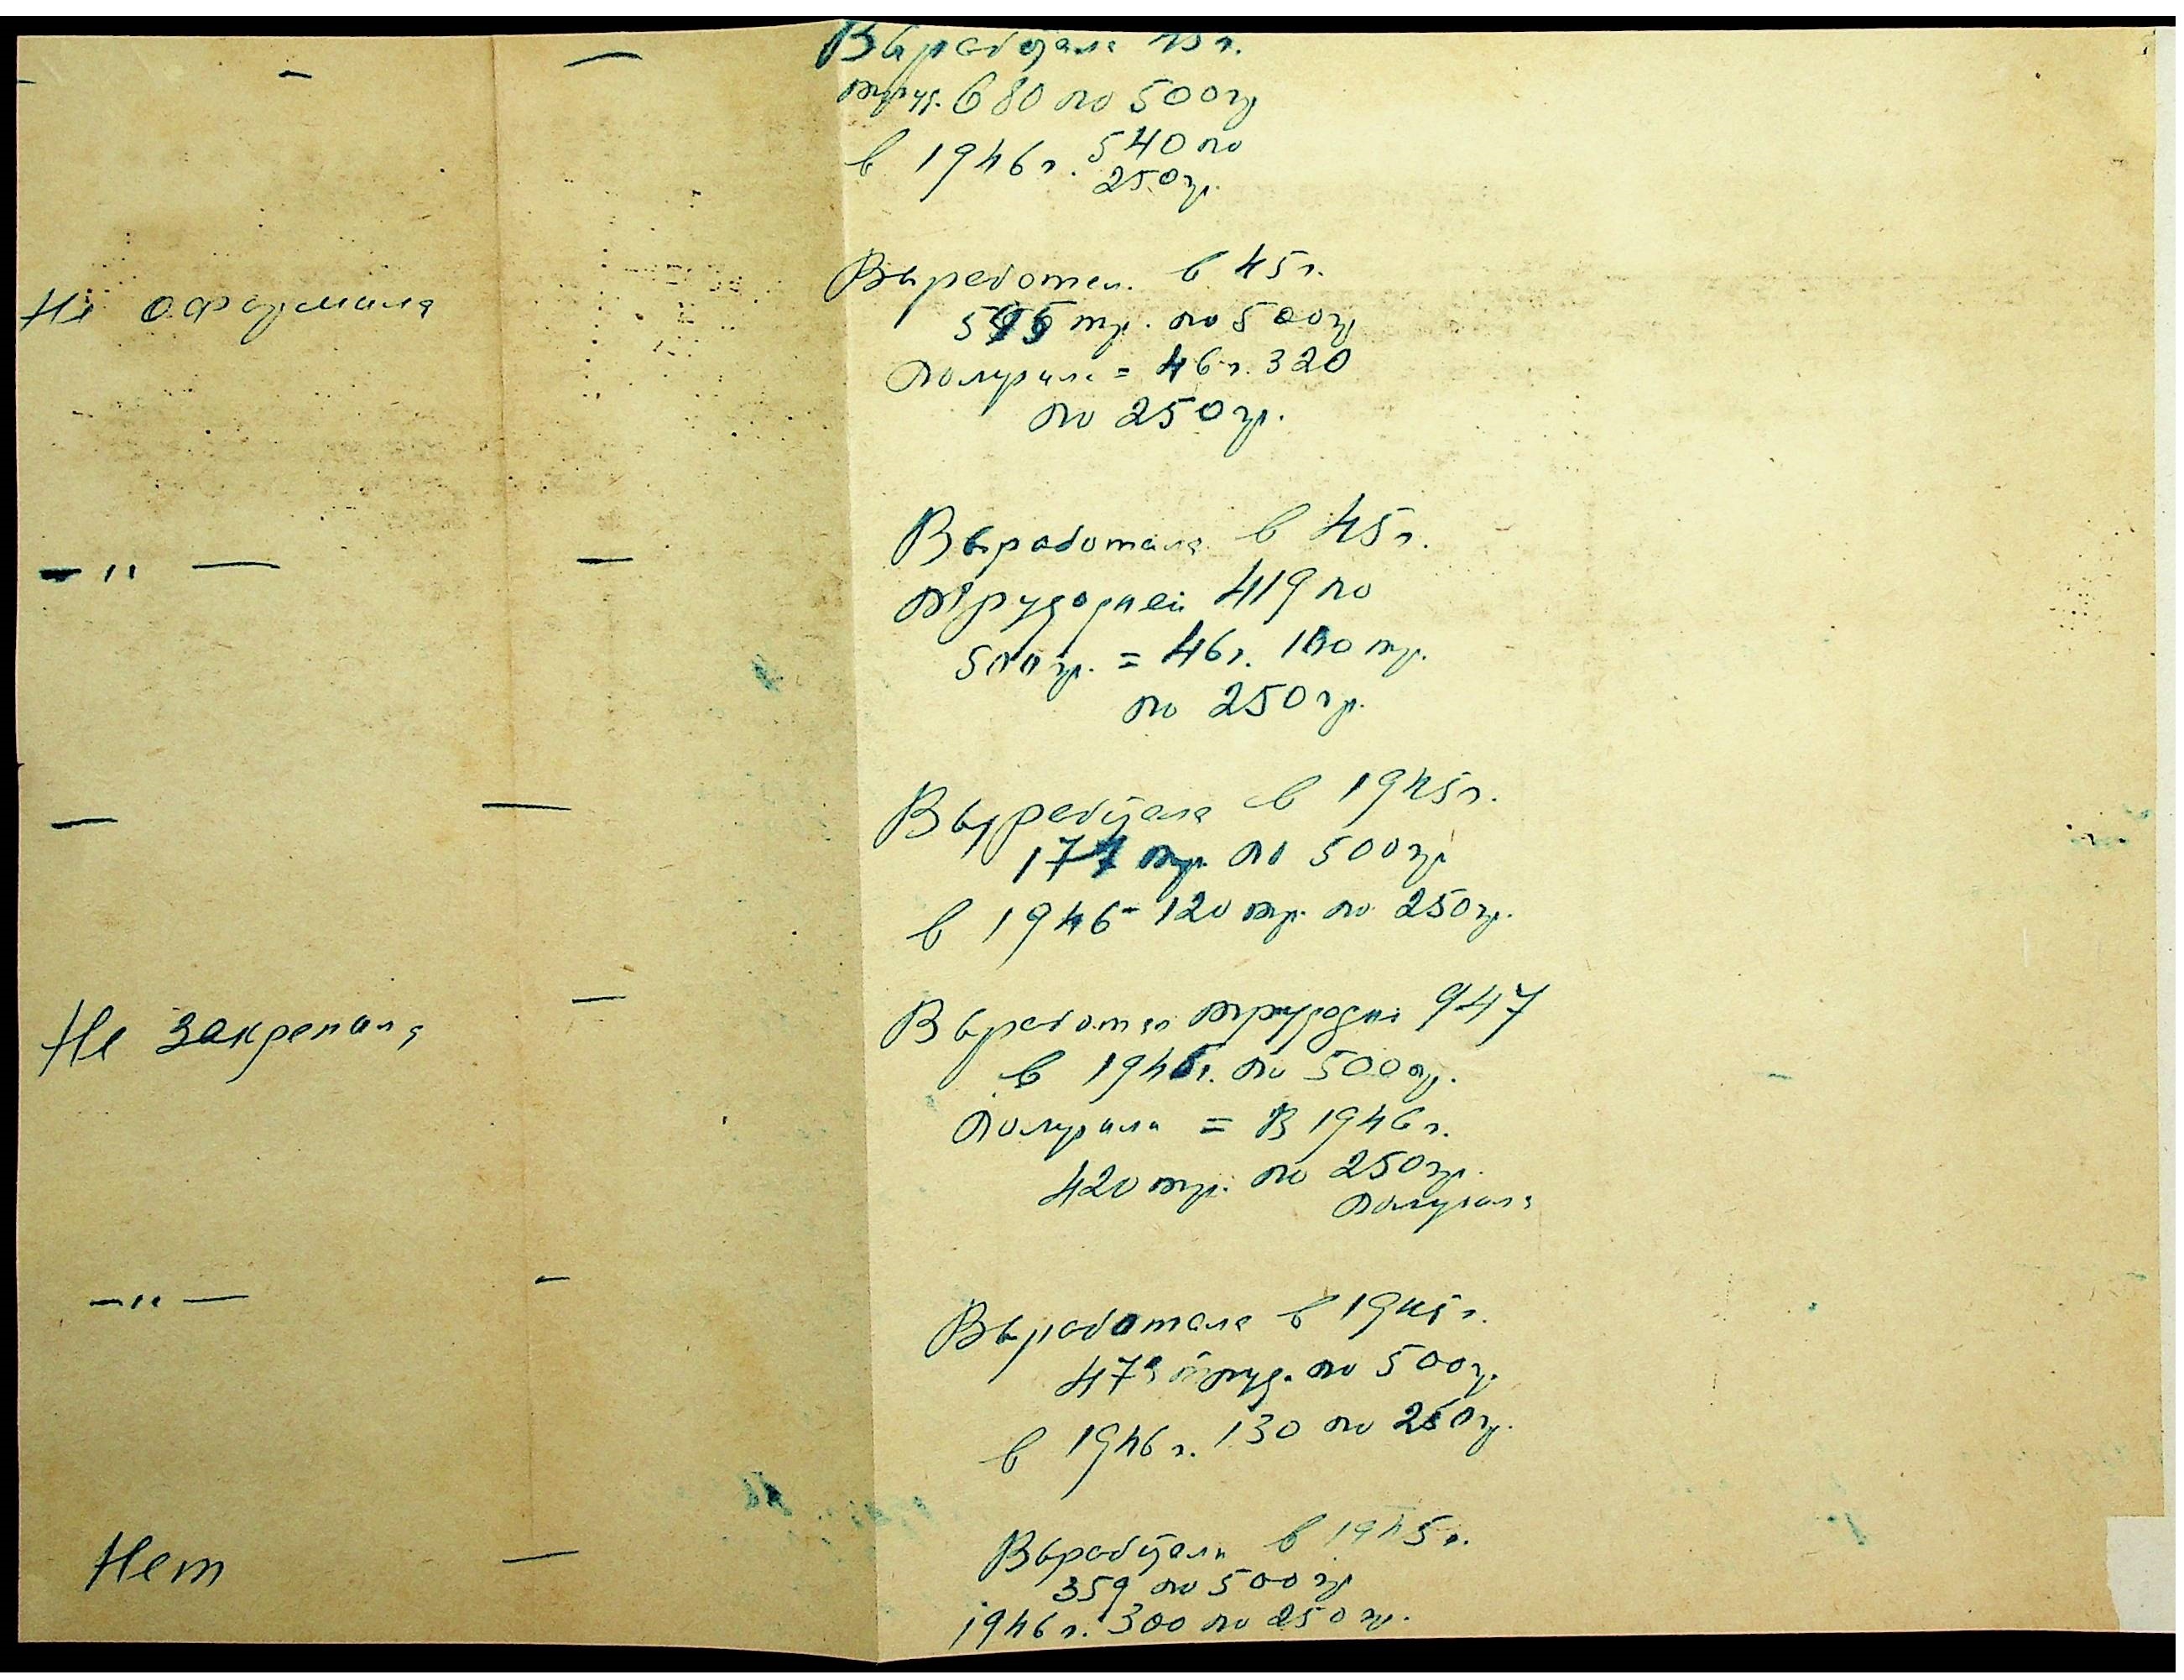 Выработала 45 г.
труд. 680 по 500 гр
в 1946 г. 540 по
250 гр.
Не оформила
Выработал. в 45 г.
тр. по 500 гр
Получили = 46 г. 320
по 250 гр.
— " — —
Выработала в 45 г.
трудодней 419 по
500 гр. = 46 г. тр.
по 250 гр.
— —
Выработала в 1945 г.
177 тр. по 500 гр
в 1946 - 120 тр. по 250 гр.
Не закрепила
Выработал трудодни 947
в 1945 г. по 500 гр.
Получили = В 1946 г.
420 тр. по 250 гр.
Получила
— " — —
Выработала в 1945 г.
труд. по 500 гр.
в 1946 г. 130 по 250 гр.
Нет —
Выработали в 1945 г.
359 по 500 гр
1946 г. 300 по 250 гр.